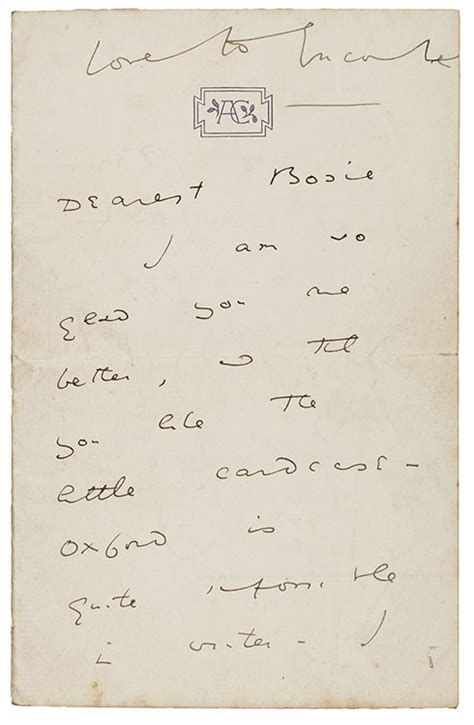 love to Encombe
AC
Dearest Bosie
I am so
glad you are
better, & that
you like the
little cardcase –
Oxford is
quite impossible
in winter – I